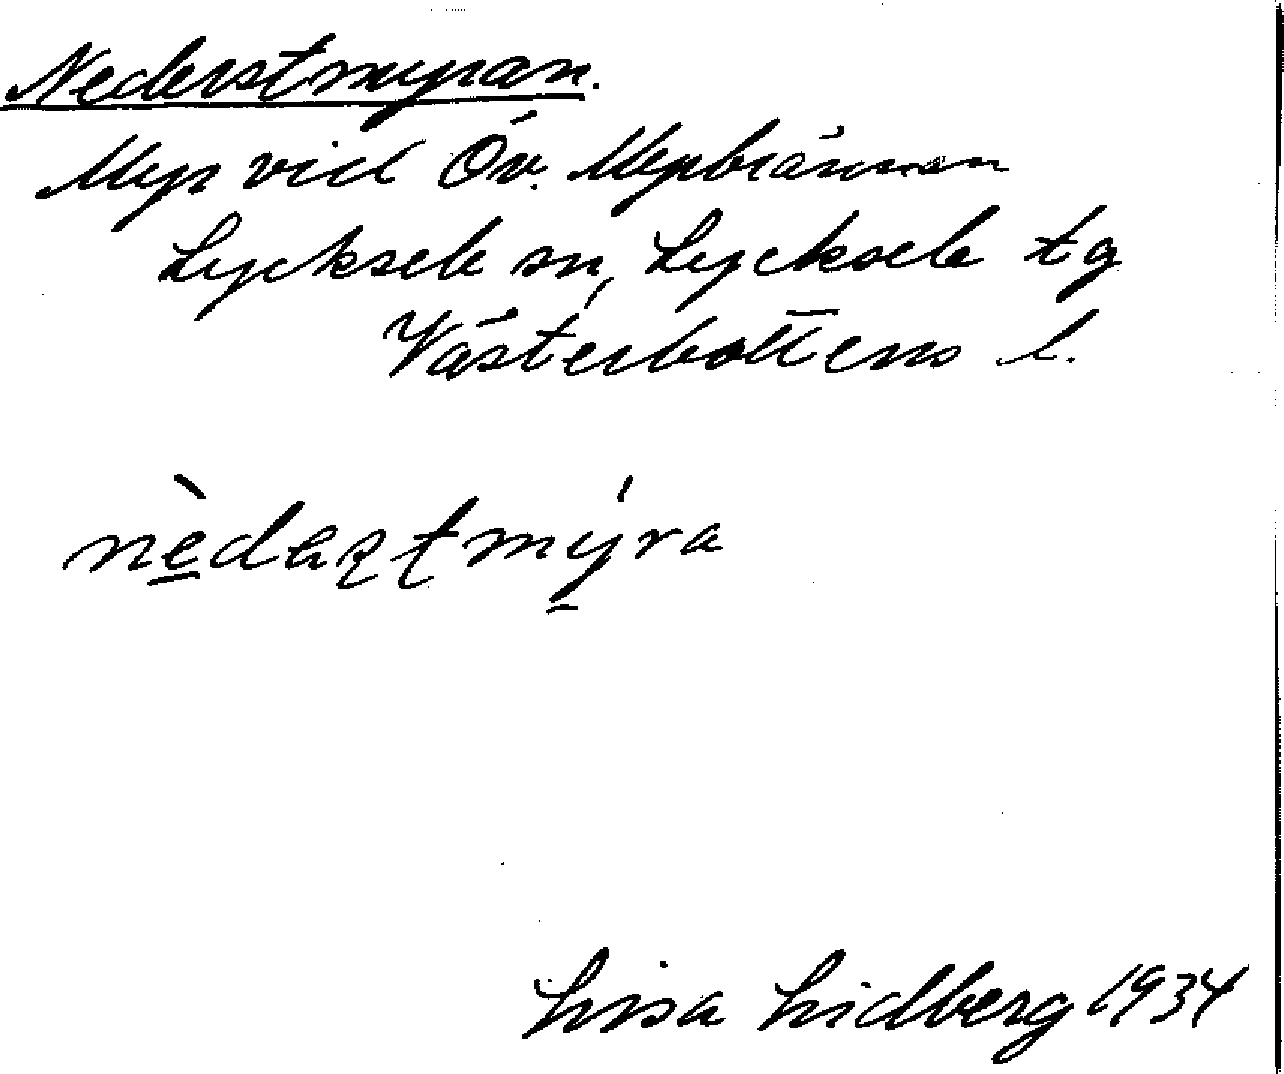 Nederstmyran.
Myr vid Öv. Myrbrännan
Lycksele sn, Lycksele tg
Västerbottens l.
nèdaʂʈmýra
Lisa Lidberg 1934